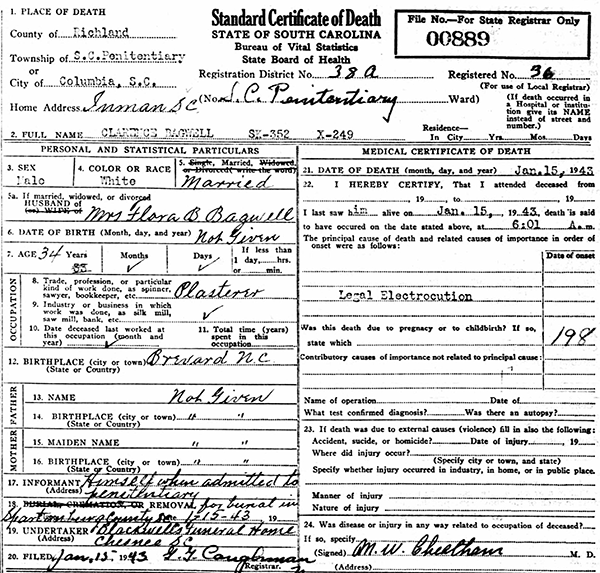 1. PLACE OF DEATH
County of Richland
Township of S.C.Penitentiary
or
City of Columbia, S.C.
Home Address Inman SC
Standard Certificate of Death
STATE OF SOUTH CAROLINA
Bureau of Vital Statistics
State Board of Health
File No.—For State Registrar Only
00889
Registration District No. 38A Registered No. 36
(For use of Local Registrar)
(No. S. C. Penitentiary Ward)
(If death occurred in a Hospital or institution give its NAME instead of street and number.)
2. FULL NAME CLARENCE BAGWELL SK-352 X-249
Residence—
In City Yrs. Mos. Days
PERSONAL AND STATISTICAL PARTICULARS
3. SEX
Male
4. COLOR OR RACE
White
5. Single, Married, Widowed, or Divorced (write the word)
Married
5a. If married, widowed, or divorced
HUSBAND of
(or) WIFE of Mrs Flora B Bagwell
6. DATE OF BIRTH (Month, day, and year) Not Given
7. AGE 34 Years
33
Months
Days
If less than 1 day, hrs. or min.
OCCUPATION
8. Trade, profession, or particular kind of work done, as spinner, sawyer, bookkeeper, etc. Plasterer
9. Industry or business in which work was done, as silk mill, saw mill, bank, etc.
10. Date deceased last worked at this occupation (month and year)
11. Total time (years) spent in this occupation
12. BIRTHPLACE (city or town) Brevard N.C
(State or Country)
FATHER
13. NAME Not Given
14. BIRTHPLACE (city or town) " "
(State or Country)
MOTHER
15. MAIDEN NAME " "
16. BIRTHPLACE (city or town) " "
(State or Country)
17. INFORMANT Himself when admitted to
(Address) penitentiary
18. BURIAL, CREMATION, OR REMOVAL for burial in
Spartanburg County SC 1-15-43 19
19. UNDERTAKER Blackwells Funeral Home
(Address) Chesnee SC
20. FILED Jan. 15 1943
Registrar.
MEDICAL CERTIFICATE OF DEATH
21. DATE OF DEATH (month, day, and year) Jan.15, 1943
22. I HEREBY CERTIFY, That I attended deceased from
, 19 to , 19
I last saw him alive on Jan. 15, 1943, death is said
to have occured on the date stated above, at 6:01 A.m.
The principal cause of death and related causes of importance in order of onset were as follows:
Date of onset
Legal Electrocution
Was this death due to pregnancy or to childbirth? If so,
state which 198
Contributory causes of importance not related to principal cause:
Name of operation Date of
What test confirmed diagnosis? Was there an autopsy?
23. If death was due to external causes (violence) fill in also the following:
Accident, suicide, or homicide? Date of injury 19
Where did injury occur?
(Specify city or town, and state)
Specify whether injury occurred in industry, in home, or in public place.
Manner of injury
Nature of injury
24. Was disease or injury in any way related to occupation of deceased?
If so, specify
(Signed) M. W. Cheatham M. D.
(Address)